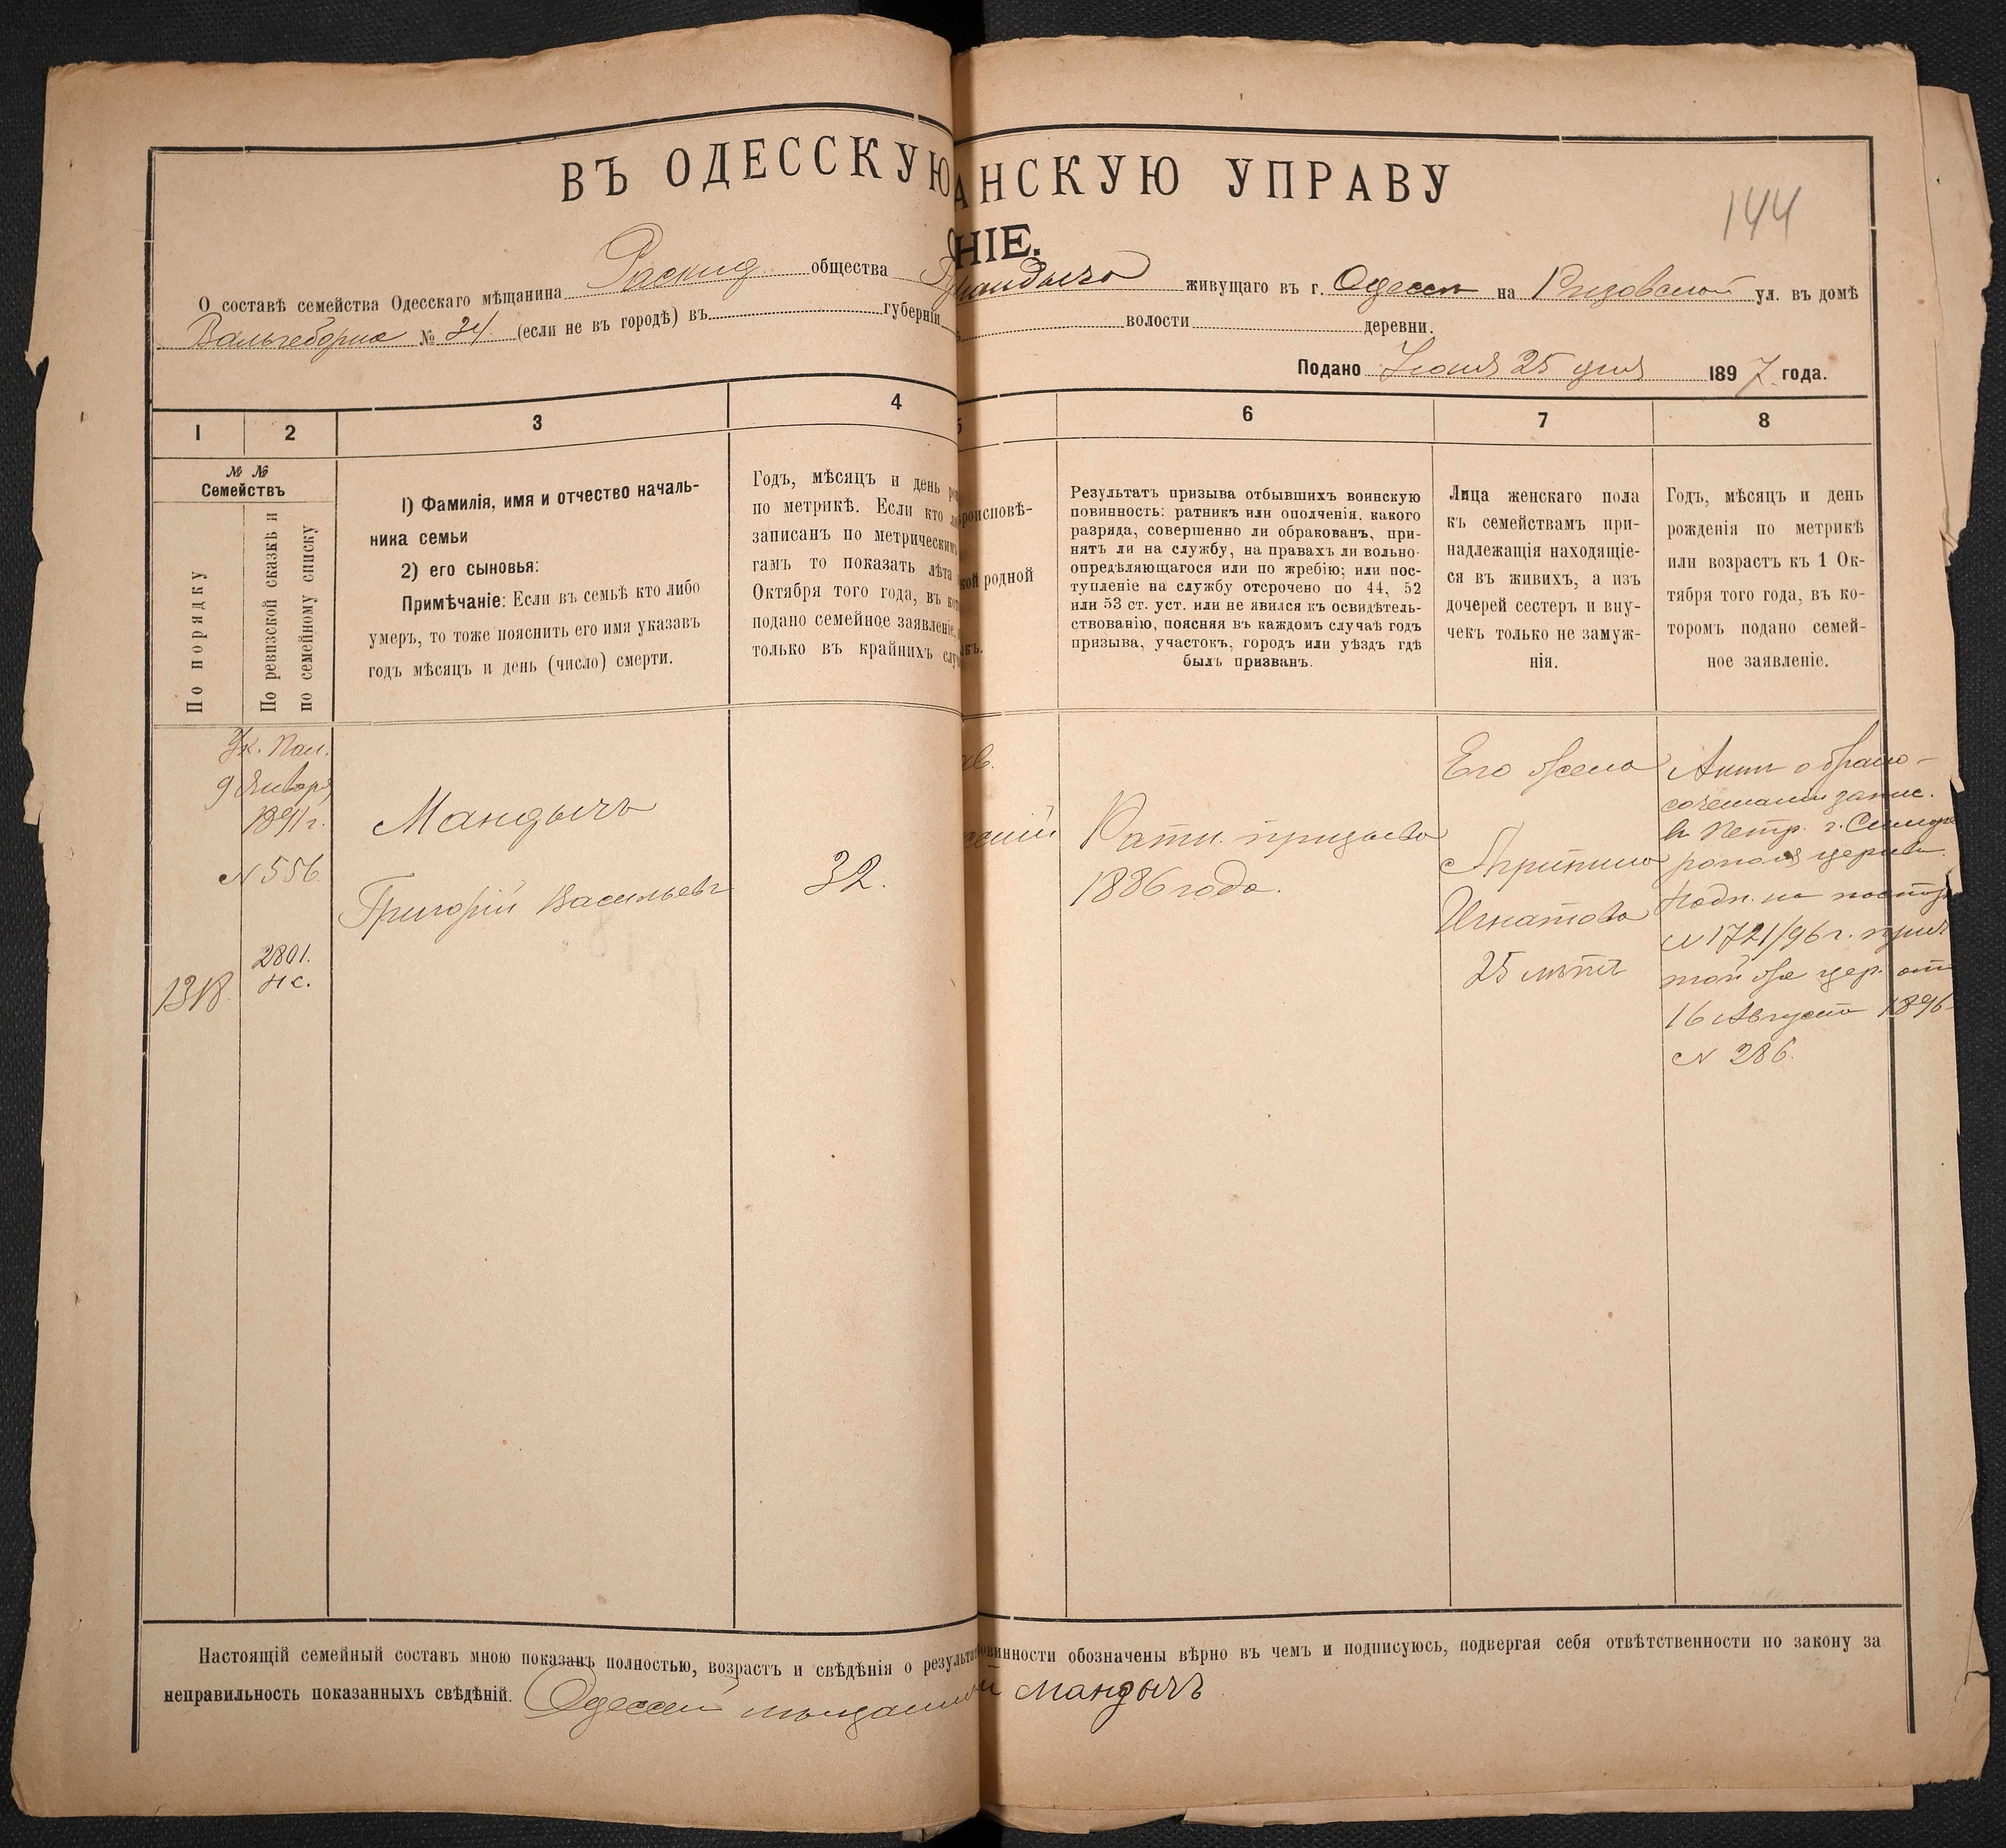 ВЪ ОДЕССКУЮ
АНСКУЮ УПРАВУ
144
НІЕ.
О составѣ семейства Одесскаго мѣщанина Раскид общества Мандыча живущаго въ г. Одессѣ на Ризовской ул. въ домѣ
№ 24 (если не въ городѣ) въ губерніи волости деревни.
Подано Іюня 25 дня 1897 года.
1 2 3 4 5 6 7 8
№ №
Семействъ
По порядку
По ревизской сказкѣ и
по семейному списку
1) Фамилія, имя и отчество началь-
ника семьи
2) его сыновья:
Примѣчаніе: Если въ семьѣ кто либо
умеръ, то тоже пояснить его имя указавъ
годъ мѣсяцъ и день (число) смерти.
Годъ, мѣсяцъ и день
по метрикѣ. Если кто
записанъ по метрическимъ
гамъ то показать лѣта
Октября того года, въ
подано семейное заявленіе,
только въ крайнихъ
роисповѣ-
кой родной
Результатъ призыва отбывшихъ воинскую
повинность: ратникъ или ополченія, какого
разряда, совершенно ли обракованъ, при-
нятъ ли на службу, на правахъ ли вольно-
опредѣляющагося или по жребію; или пос-
тупленіе на службу отсрочено по 44, 52
или 53 ст. уст. или не явился къ освидѣтель-
ствованію, поясняя въ каждомъ случаѣ годъ
призыва, участокъ, городъ или уѣздъ гдѣ
былъ призванъ.
Лица женскаго пола
къ семействамъ при-
надлежащія находящіе-
ся въ живихъ, а изъ
дочерей сестеръ и вну-
чекъ только не замуж-
нія.
Годъ, мѣсяцъ и день
рожденія по метрикѣ
или возрастъ къ 1 Ок-
тября того года, въ ко-
торомъ подано семей-
ное заявленіе.
Ук. Пал.
9 Января
1891 г.
№ 556.
2801.
н с.
1318.
Мандычъ
Григорій Васильевъ
32.
Ратн. призыва
1886 года.
Его жена
Игнатова
25 лѣтъ
Актъ о брако-
сочетаніи запис.
въ Петр. г. Симфе
рополя церкви.
№ 1721/96 г. прич
той же цер. отъ
16 Августа 1896
№ 286.
Настоящій семейный составъ мною показанъ полностью, возрастъ и свѣдѣнія о результат
овинности обозначены вѣрно въ чемъ и подписуюсь, подвергая себя отвѣтственности по закону за
неправильность показанныхъ свѣдѣній. Одесскій мѣщанин Мандычъ